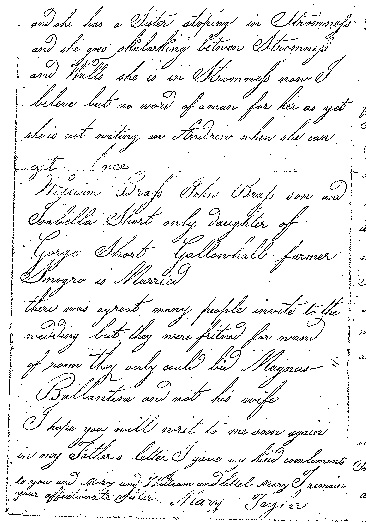 and she has a Sister stoping in Stromness
and she goes skalarking between Stromness
and Walls she is in Stromness now I
beleve but no word of a man for her as yet
she is not wating on Andrew when she can
get 
William Brass John Brass son and
Isabella Short only daughter of
Gorge Short Gallowhall farmer
Smogro is Married
there was agreat many people invite to the
wedding but they were fretend for want
of room they only could bid Magnus
Ballantin and not his wife
I hope you will wret to me soon again
in my Father's letter I give my kind compliments
to you and Mary and William and littel Mary I remain
your affectionate Sister Mary